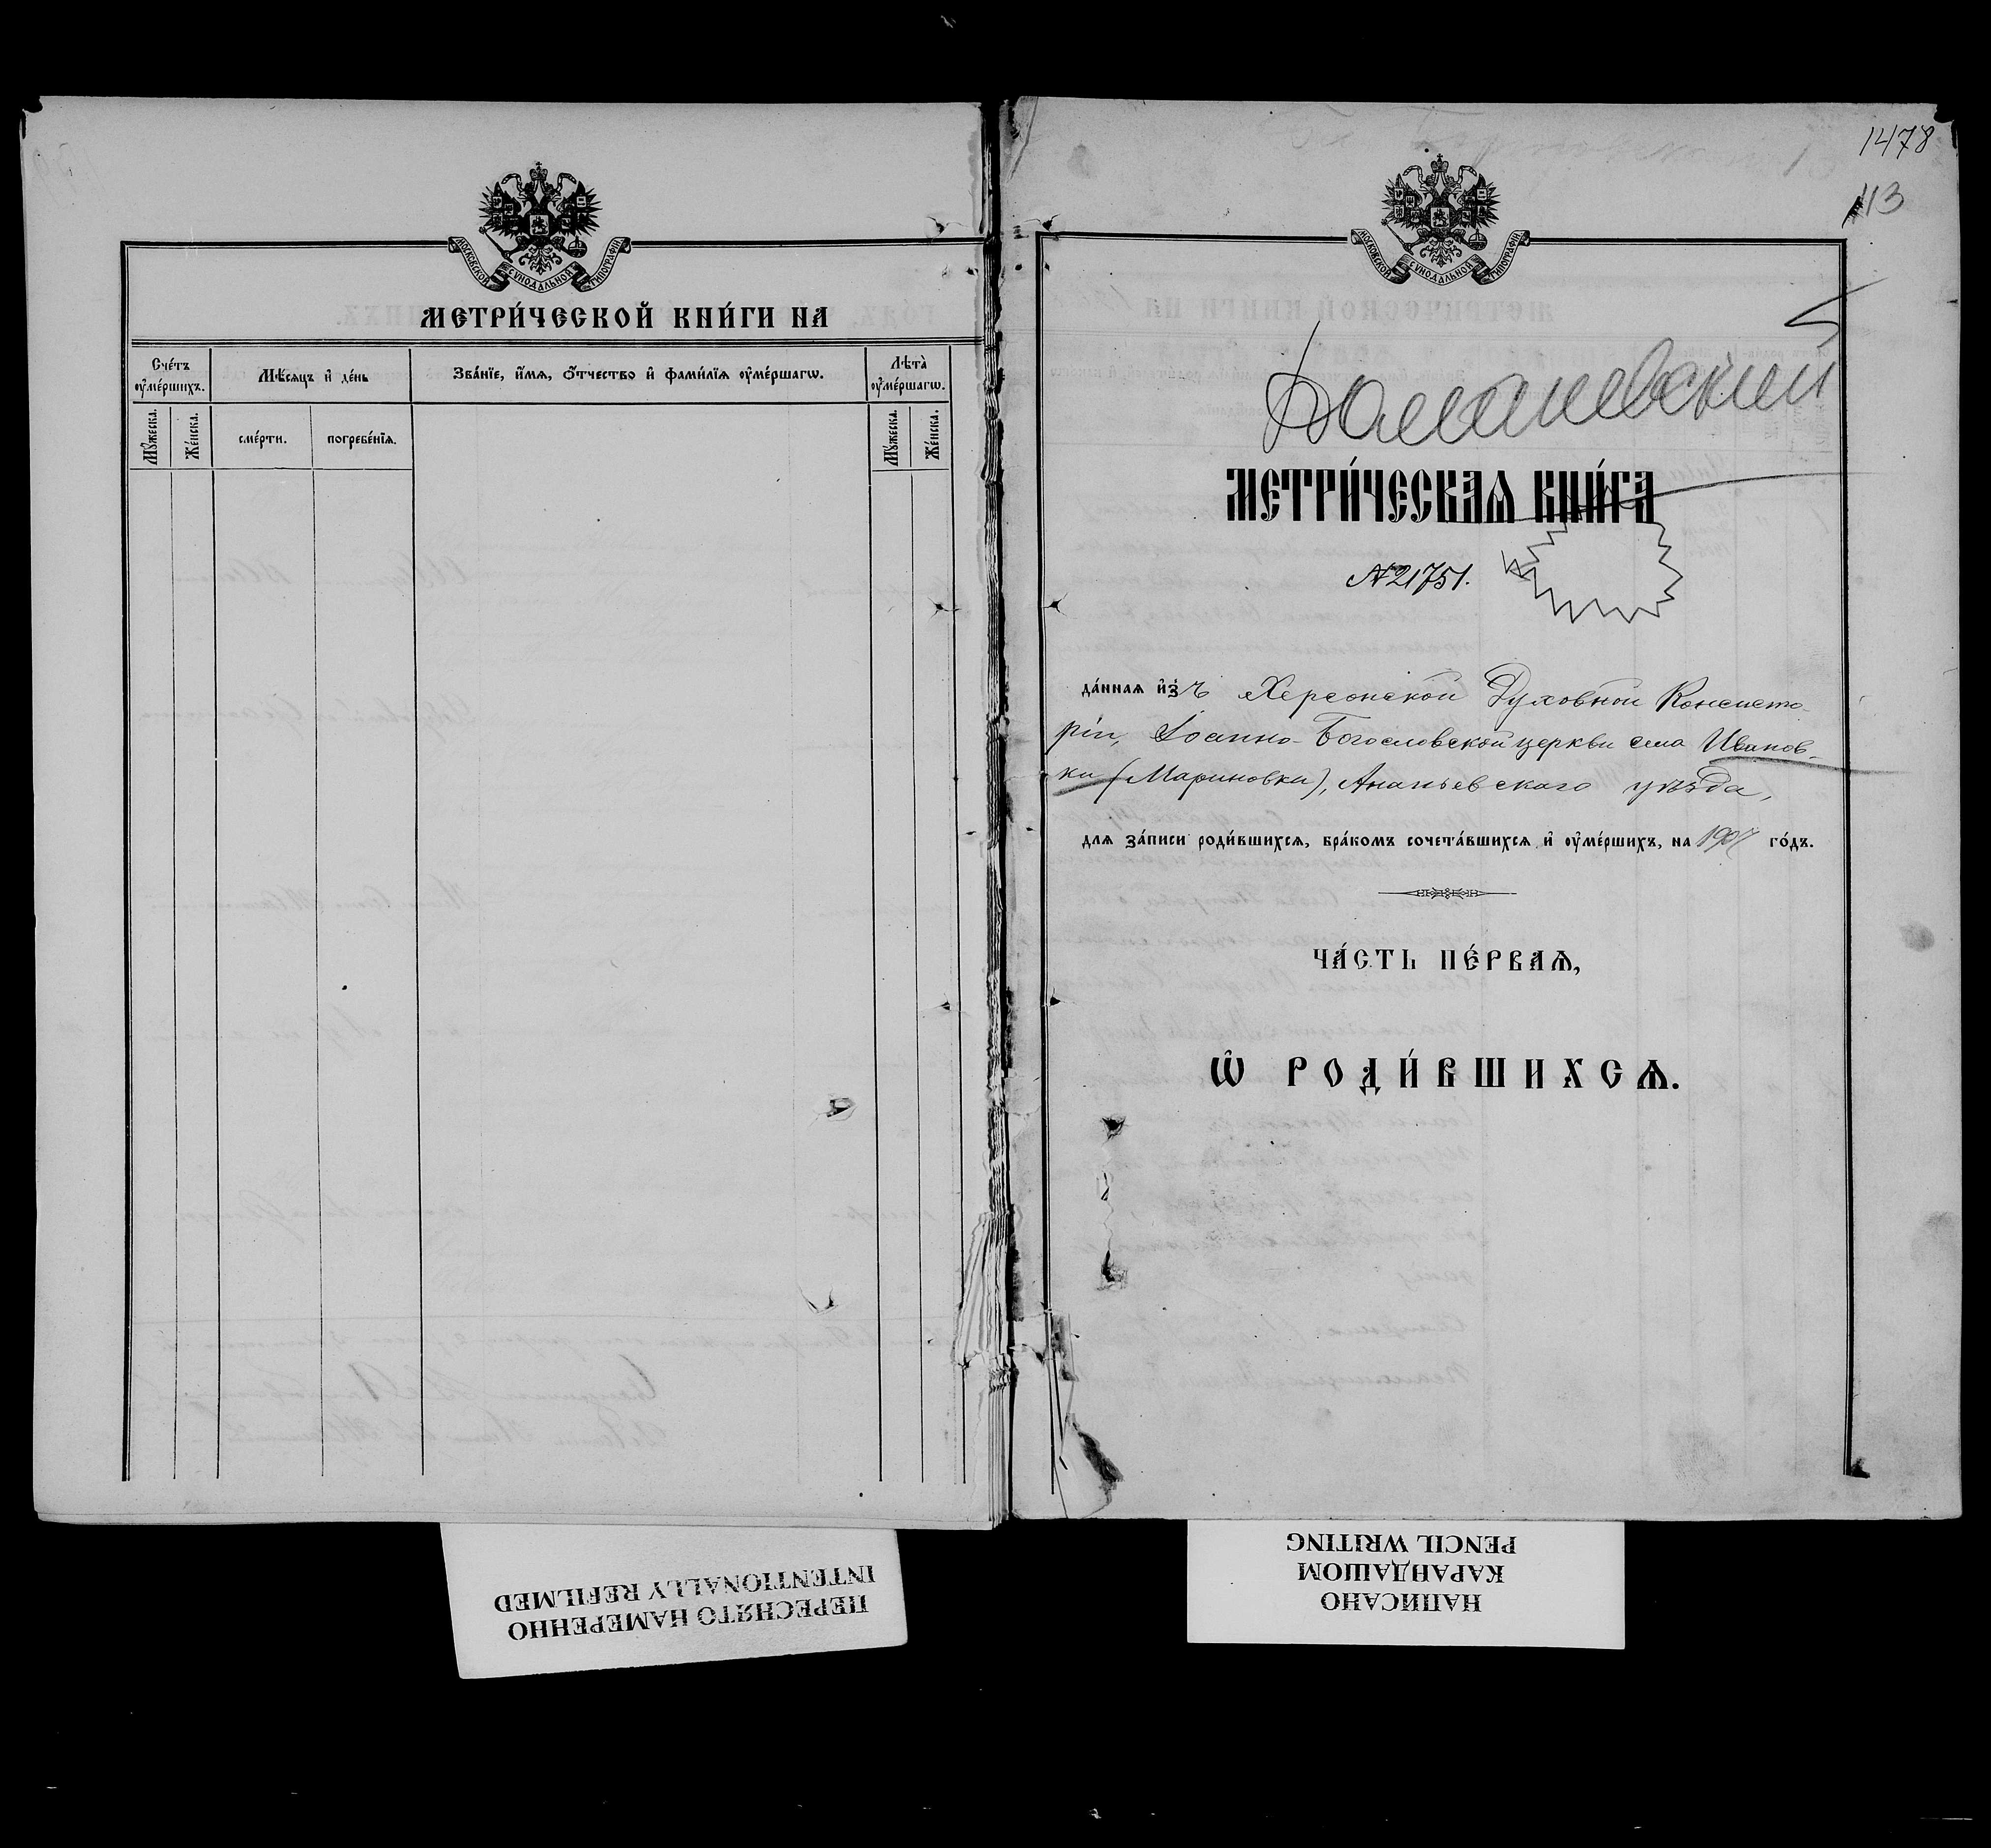 МОСКОВСКОЙ СѴНОДАЛЬНОЙ ТИПОГРАФІИ
МЕТРИ́ЧЕСКОЙ КНИ́ГИ НА
Сче́тъ ᲂу҆ме́ршихъ.
Мѣ́сяцъ и҆ де́нь
Зва́нїе, и҆́мѧ, ѻ҆́тчество и҆ фами́лїѧ ᲂу҆ме́ршагѡ.
Лѣта̀ ᲂу҆ме́ршагѡ.
Мꙋ́жеска.
Же́нска.
сме́рти.
погребе́нїѧ.
Мꙋ́жеска.
Же́нска.
1478
113
МОСКОВСКОЙ СѴНОДАЛЬНОЙ ТИПОГРАФІИ
5
МЕТРИ́ЧЕСКАѦ КНИ́ГА
№ 21751.
да́ннаѧ и҆зъ Херсонской Духовной Консисто-
ріи, Іоанно-Богословской церкви села Иванов-
ки (Мариновки), Ананьевскаго уѣзда,
для за́писи роди́вшихсѧ, бра́комъ сочета́вшихсѧ и҆ ᲂу҆ме́ршихъ, на 1907 го́дъ.
ЧА́СТЬ ПЕ́РВАѦ,
Ѽ РОДИ́ВШИХСѦ.
ПЕРЕСНЯТО НАМЕРЕННО
INTENTIONALLY REFILMED
НАПИСАНО
КАРАНДАШОМ
PENCIL WRITING